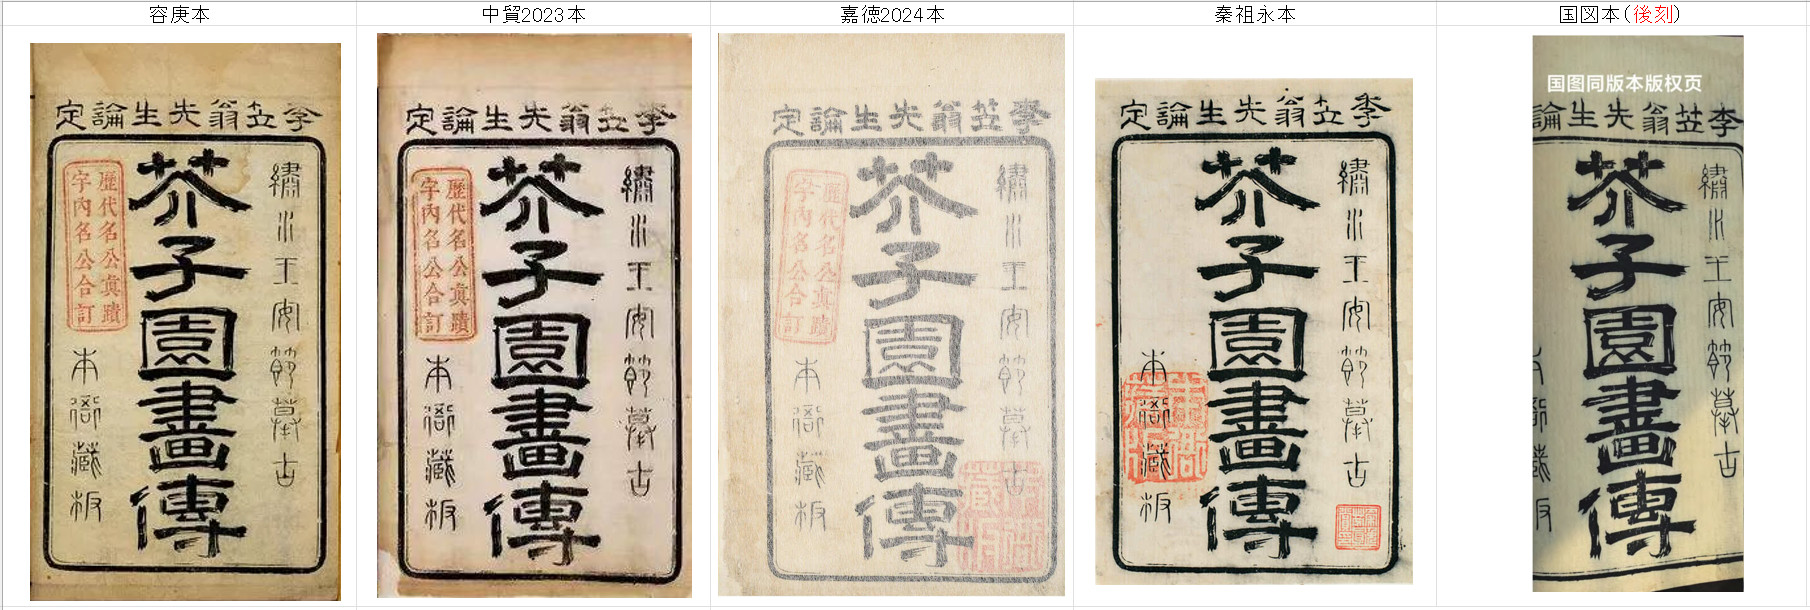 容庚本
中貿2023本
嘉徳2024本
秦祖永本
国図本（後刻）
李笠翁先生論定
繡水王安節摹古
芥子園畫傳
歷代名公眞蹟
宇內名公合訂
本衙藏板
李笠翁先生論定
繡水王安節摹古
芥子園畫傳
歷代名公眞蹟
宇內名公合訂
本衙藏板
李笠翁先生論定
繡水王安節摹古
芥子園畫傳
歷代名公眞蹟
宇內名公合訂
本衙藏板
李笠翁先生論定
繡水王安節摹古
芥子園畫傳
本衙藏板
国图同版本版权页
李笠翁先生論
繡水王安節摹古
芥子園畫傳